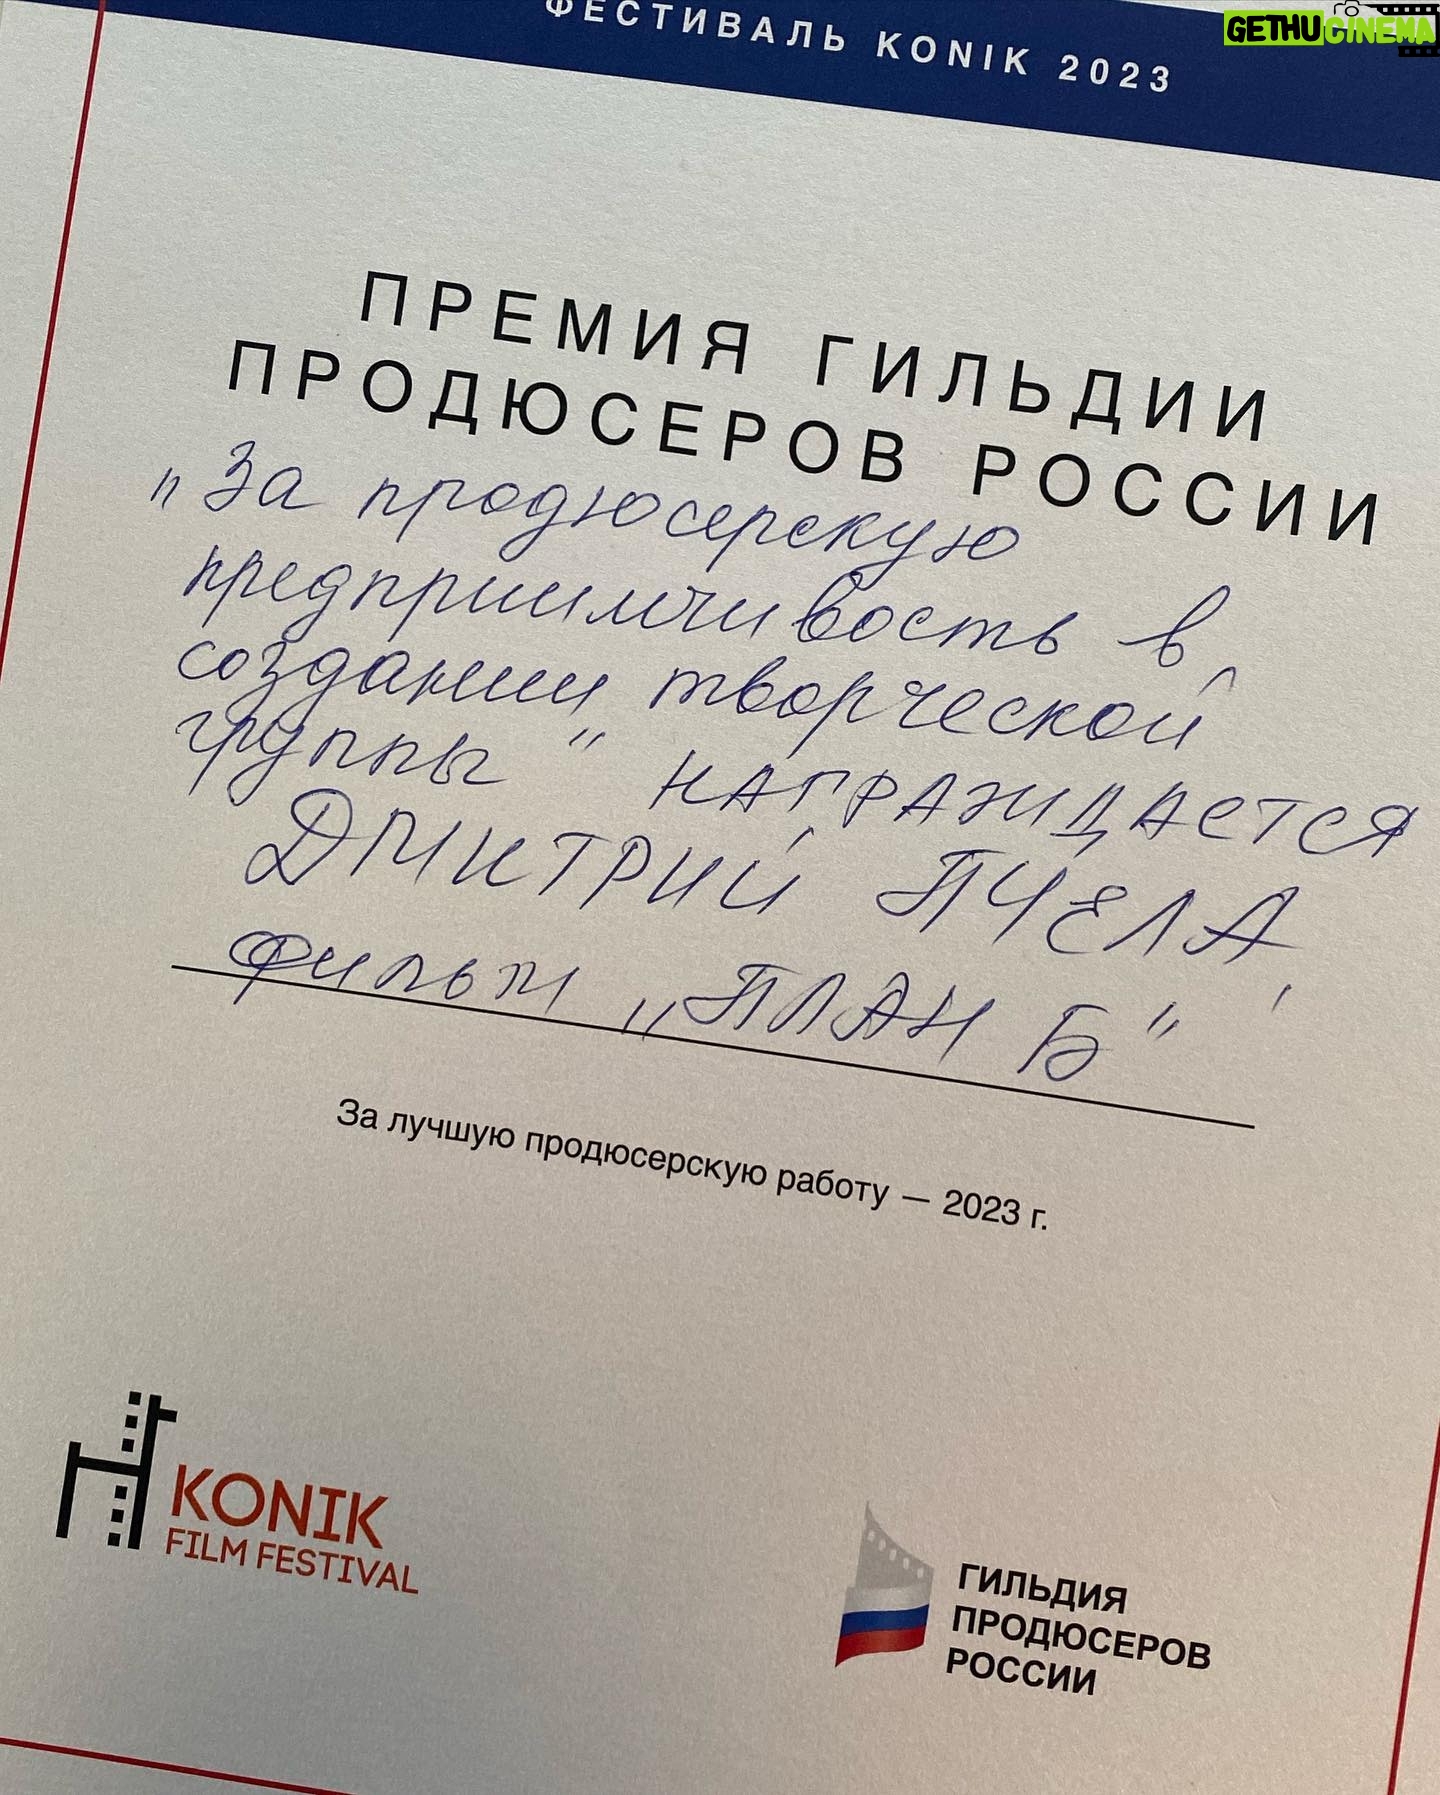 ФЕСТИВАЛЬ KONIK 2023
GETHUCINEMA
ПРЕМИЯ ГИЛЬДИИ
ПРОДЮСЕРОВ РОССИИ
„За продюсерскую
предприимчивость в
создании творческой
группы“ НАГРАЖДАЕТСЯ
ДМИТРИЙ ПЧЕЛА,
фильм „ПЛАН Б“
За лучшую продюсерскую работу — 2023 г.
KONIK
FILM FESTIVAL
ГИЛЬДИЯ
ПРОДЮСЕРОВ
РОССИИ